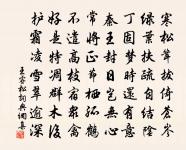 寒松聳拔倚蒼岑
綠葉扶疏自結陰
丁固夢時還有意
秦王封日豈無心
常將正節棲孤鶴
不遣高枝宿眾禽
好是特凋群木後
護霜凌雪翠逾深
王睿松詞典網集